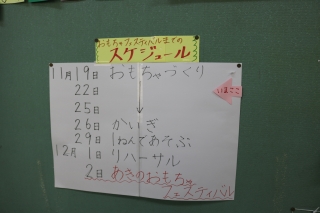 おもちゃフェスティバルまでの
スケジュール
11月19日 おもちゃづくり
22日
いまここ
25日
26日 かいぎ
29日 1ねんであそぶ
12月1日 リハーサル
2日 あきのおもちゃ
フェスティバル